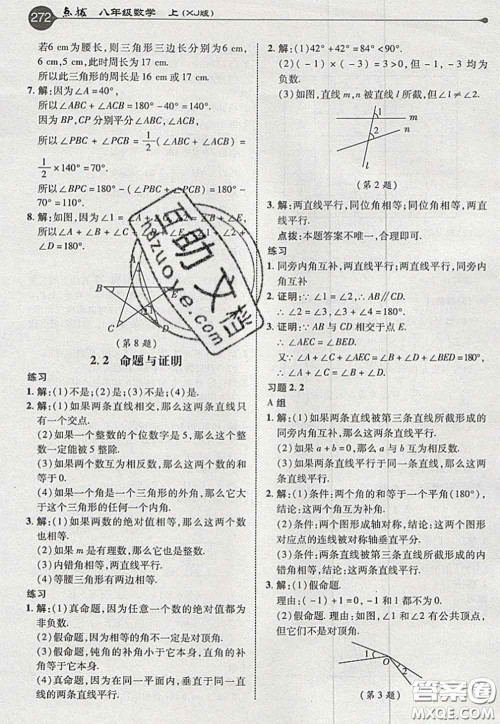 272 点拨 八年级数学 上(XJ版)
若6 cm为腰长,则三角形三边长为6 cm,
6 cm,5 cm,此时周长为17 cm.
所以此三角形的周长是16 cm或17 cm.
7. 解:因为∠A=40°,
所以∠ABC+∠ACB=180°-40°=140°.
因为BP,CP分别平分∠ABC,∠ACB,
所以∠PBC+∠PCB=1/2(∠ABC+∠ACB)=
1/2×140°=70°.
所以∠BPC=180°-
8. 解:如图,因为∠1
所以∠A+∠
∠D=180°.
A
B
E
C
D
1
2
(第8题)
2.2 命题与证明
练习
1. 解:(1)不是;(2)是;(3)不是;(4)是.
2. 解:(1)如果两条直线相交,那么这两条直线只
有一个交点.
(2)如果一个整数的个位数字是5,那么这个整
数一定能被5整除.
(3)如果两个数互为相反数,那么这两个数的和
等于0.
(4)如果一个角是一个三角形的外角,那么它大
于这个三角形的任何一个内角.
3. 解:(1)如果两数的绝对值相等,那么这两个数
也相等.
(2)如果m是有理数,那么它一定是整数.
(3)内错角相等,两直线平行.
(4)等腰三角形有两边相等.
练习
1. 解:(1)真命题,因为任意一个数的绝对值都为
非负数.
(2)假命题,如两直线平行,同位角相等,但它们
不一定是对顶角.
(3)假命题,钝角的补角小于它本身,直角的补
角等于它本身.
(4)真命题,因为在同一平面内,垂直于同一条
直线的两条直线平行.
(1)42°+42°=84°<90°.
2. (2)(-1)×(-3)=3>0,但-1,-3均为
负数.
(3)如图,直线m,n被直线l所截,但∠1≠∠2.
1
m
2
n
l
(第2题)
3. 解:两直线平行,同位角相等;两直线平行,内错
角相等.
点拨:本题答案不唯一,合理即可.
练习
1. 同旁内角互补,两直线平行;两直线平行,同旁内角互补
2. 证明:∵∠1=∠2,∴AB∥CD.
∴∠A+∠D=180°.
3. 证明:∵直线AB与CD相交于点E,
∴∠AEC=∠BED.
又∵∠A+∠C+∠AEC=∠B+∠D+
∠BED=180°,∴∠A+∠C=∠B+∠D.
习题2.2
A组
1. 解:(1)如果两条直线被第三条直线所截形成的
同旁内角互补,那么这两条直线平行.
(2)如果a+b=0,那么a与b互为相反数.
(3)如果两条直线被第三条直线所截形成的内
错角相等,那么这两条直线平行.
2. 解:(1)条件:两个角的和等于一个平角(180°),
结论:这两个角互为补角.
(2)条件:两个图形成轴对称,结论:这两个图形
对应点的连线被对称轴垂直平分.
(3)条件:两条直线被第三条直线所截形成的内
错角相等,结论:这两条直线平行.
3. 解:(1)假命题.
理由:(-1)²=1²,但-1≠1.
(2)假命题.
理由:如图,∠1=∠2,
但∠1与∠2不是对顶角.
1
O
2
(第3题)
互助文档
huzuoye.com
答案圈
MXQE.COM